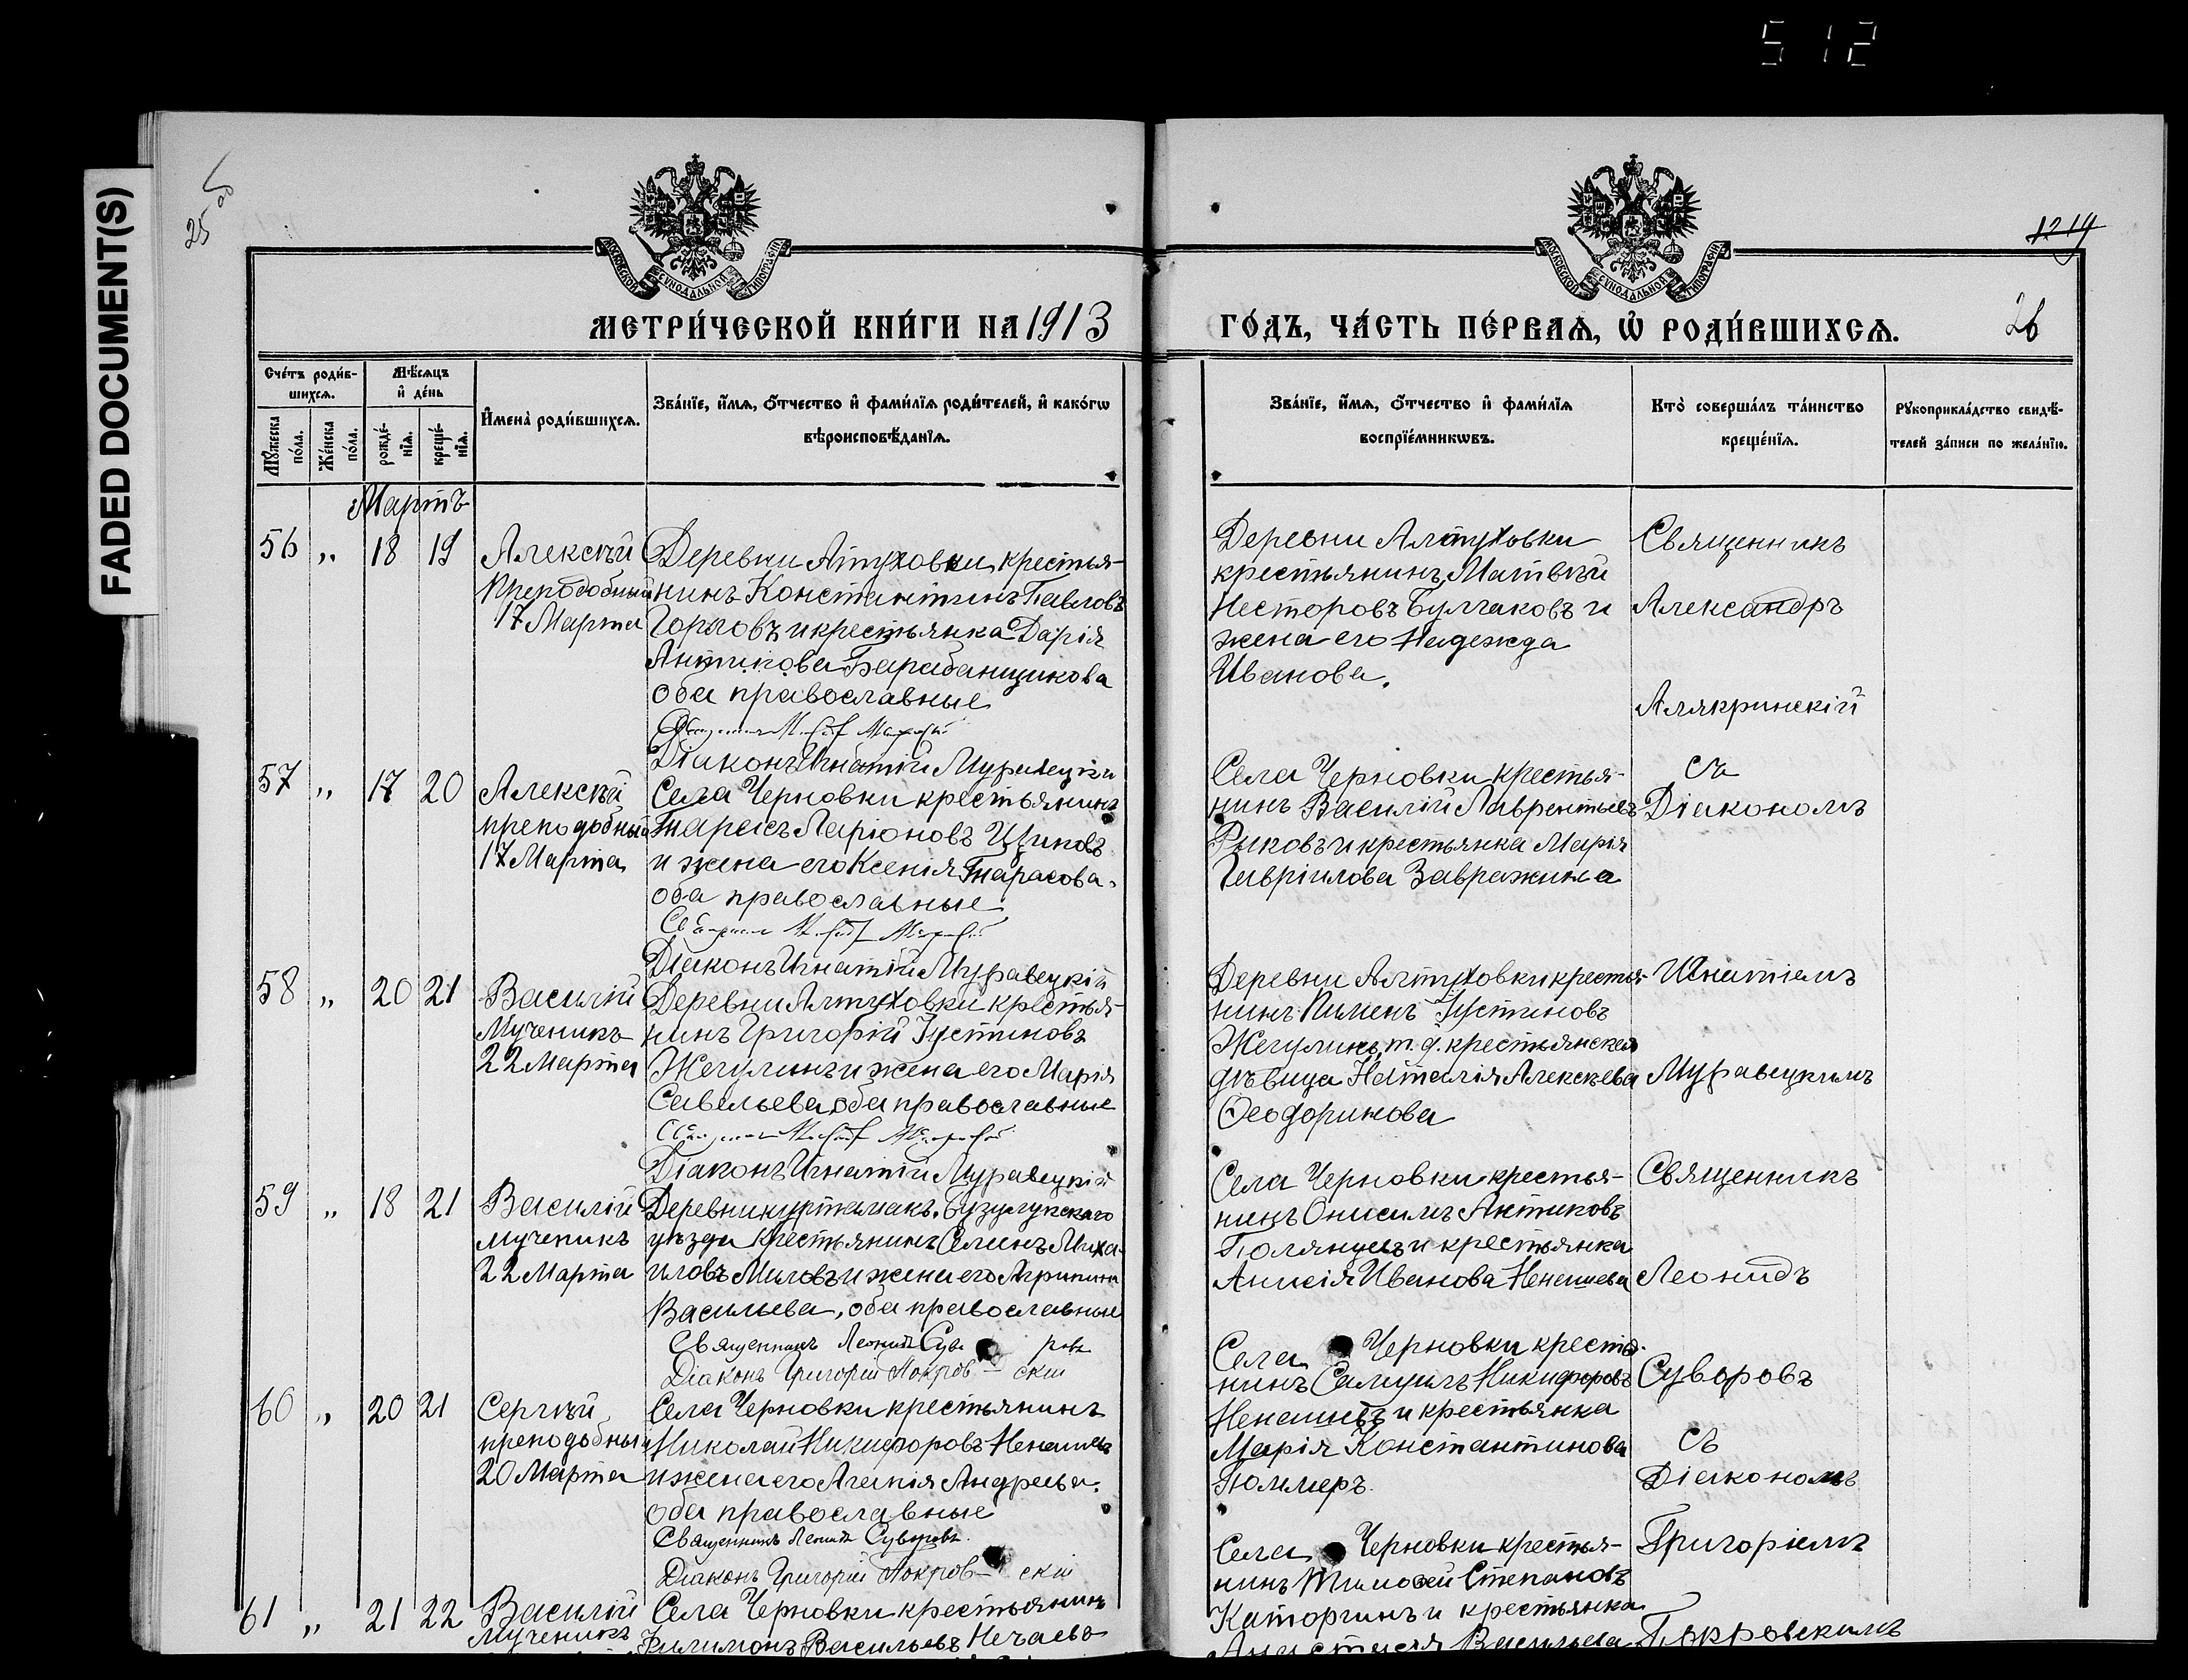 512
FADED DOCUMENT(S)
25
1214
26
МОСКОВСКОЙ СѴНОДАЛЬНОЙ ТИПОГРАФІИ
МОСКОВСКОЙ СѴНОДАЛЬНОЙ ТИПОГРАФІИ
МЕТРИ́ЧЕСКОЙ КНИ́ГИ НА 1913
ГО́ДЪ, ЧА́СТЬ ПЕ́РВАѦ, Ѽ РОДИ́ВШИХСѦ.
Сче́тъ роди́в-
шихсѧ.
Мѣ́сѧцъ
и҆ де́нь
Мꙋ́жеска
по́ла.
Же́нска
по́ла.
рожде́-
нїѧ.
креще́-
нїѧ.
И҆мена̀ роди́вшихсѧ.
Зва́нїе, и҆́мѧ, ѻ҆́тчество и҆ фами́лїѧ роди́телей, и҆ како́гѡ
вѣроисповѣ́данїѧ.
Зва́нїе, и҆́мѧ, ѻ҆́тчество и҆ фами́лїѧ
воспрїе́мникѡвъ.
Кто̀ соверша́лъ та́инство
креще́нїѧ.
Рꙋкоприкла́дство свидѣ́-
телей за́писи по жела́нїю.
Мартъ
56 „ 18 19
Алексѣй
Преподобный
17 Марта
Деревни Атуховки крестья-
нинъ Константинъ Павловъ
Горловъ и крестьянка Дарія
Антипова Барабанщикова
оба православные
Діаконъ Игнатій Муравецкій
Деревни Алтуховки
крестьянинъ Матвѣй
Несторовъ Булгаковъ и
жена его Надежда
Иванова.
Священникъ
Александръ
Алякринскій
57 „ 17 20
Алексѣй
преподобный
17 Марта
Села Черновки крестьянинъ
Тарасъ Ларіоновъ
и жена его Ксенія Тарасова.
оба православные
Діаконъ Игнатій Муравецкій
Села Черновки крестья-
нинъ Василій Лаврентьевъ
Рыковъ и крестьянка Марія
Гавріилова Завражина
съ
Діакономъ
58 „ 20 21
Василій
Мученикъ
22 Марта
Деревни Алтуховки крестья-
нинъ Григорій Іустиновъ
Жегулинъ и жена его Марія
Савельева, оба православные
Діаконъ Игнатій Муравецкій
Деревни Алтуховки крестья-
нинъ Пименъ Іустиновъ
Жегулинъ, т. д. крестьянская
дѣвица Наталія Алексѣева
Ѳеодоринова
Игнатіемъ
Муравецкимъ
59 „ 18 21
Василій
мученикъ
22 Марта
Деревни Бузулукскаго
уѣзда крестьянинъ Семенъ Миха-
иловъ Миловъ и жена его Агрипина
Васильева, оба православные
Священникъ Леонидъ Суворовъ
Діаконъ Григорій Покров-скій
Села Черновки крестья-
нинъ Онисимъ Антиповъ
Полянцевъ и крестьянка
Анисія Иванова Ненашева
Священникъ
Леонидъ
60 „ 20 21
Сергѣй
преподобный
20 Марта
Села Черновки крестьянинъ
Николай Никифоровъ Ненашевъ
и жена его Агапія Андреева.
оба православные
Священникъ Леонидъ Суворовъ
Діаконъ Григорій Покров-скій
Села Черновки крестья-
нинъ Самуилъ Никифоровъ
Ненашевъ и крестьянка
Марія Константинова
Поммеръ.
Суворовъ
съ
Діакономъ
61 „ 21 22
Василій
Мученикъ
Села Черновки крестьянинъ
Филимонъ Васильевъ Нечаевъ
Села Черновки крестья-
нинъ Тимофей Степановъ
Каторгинъ и крестьянка
Анастасія Васильева
Григоріемъ
Покровскимъ